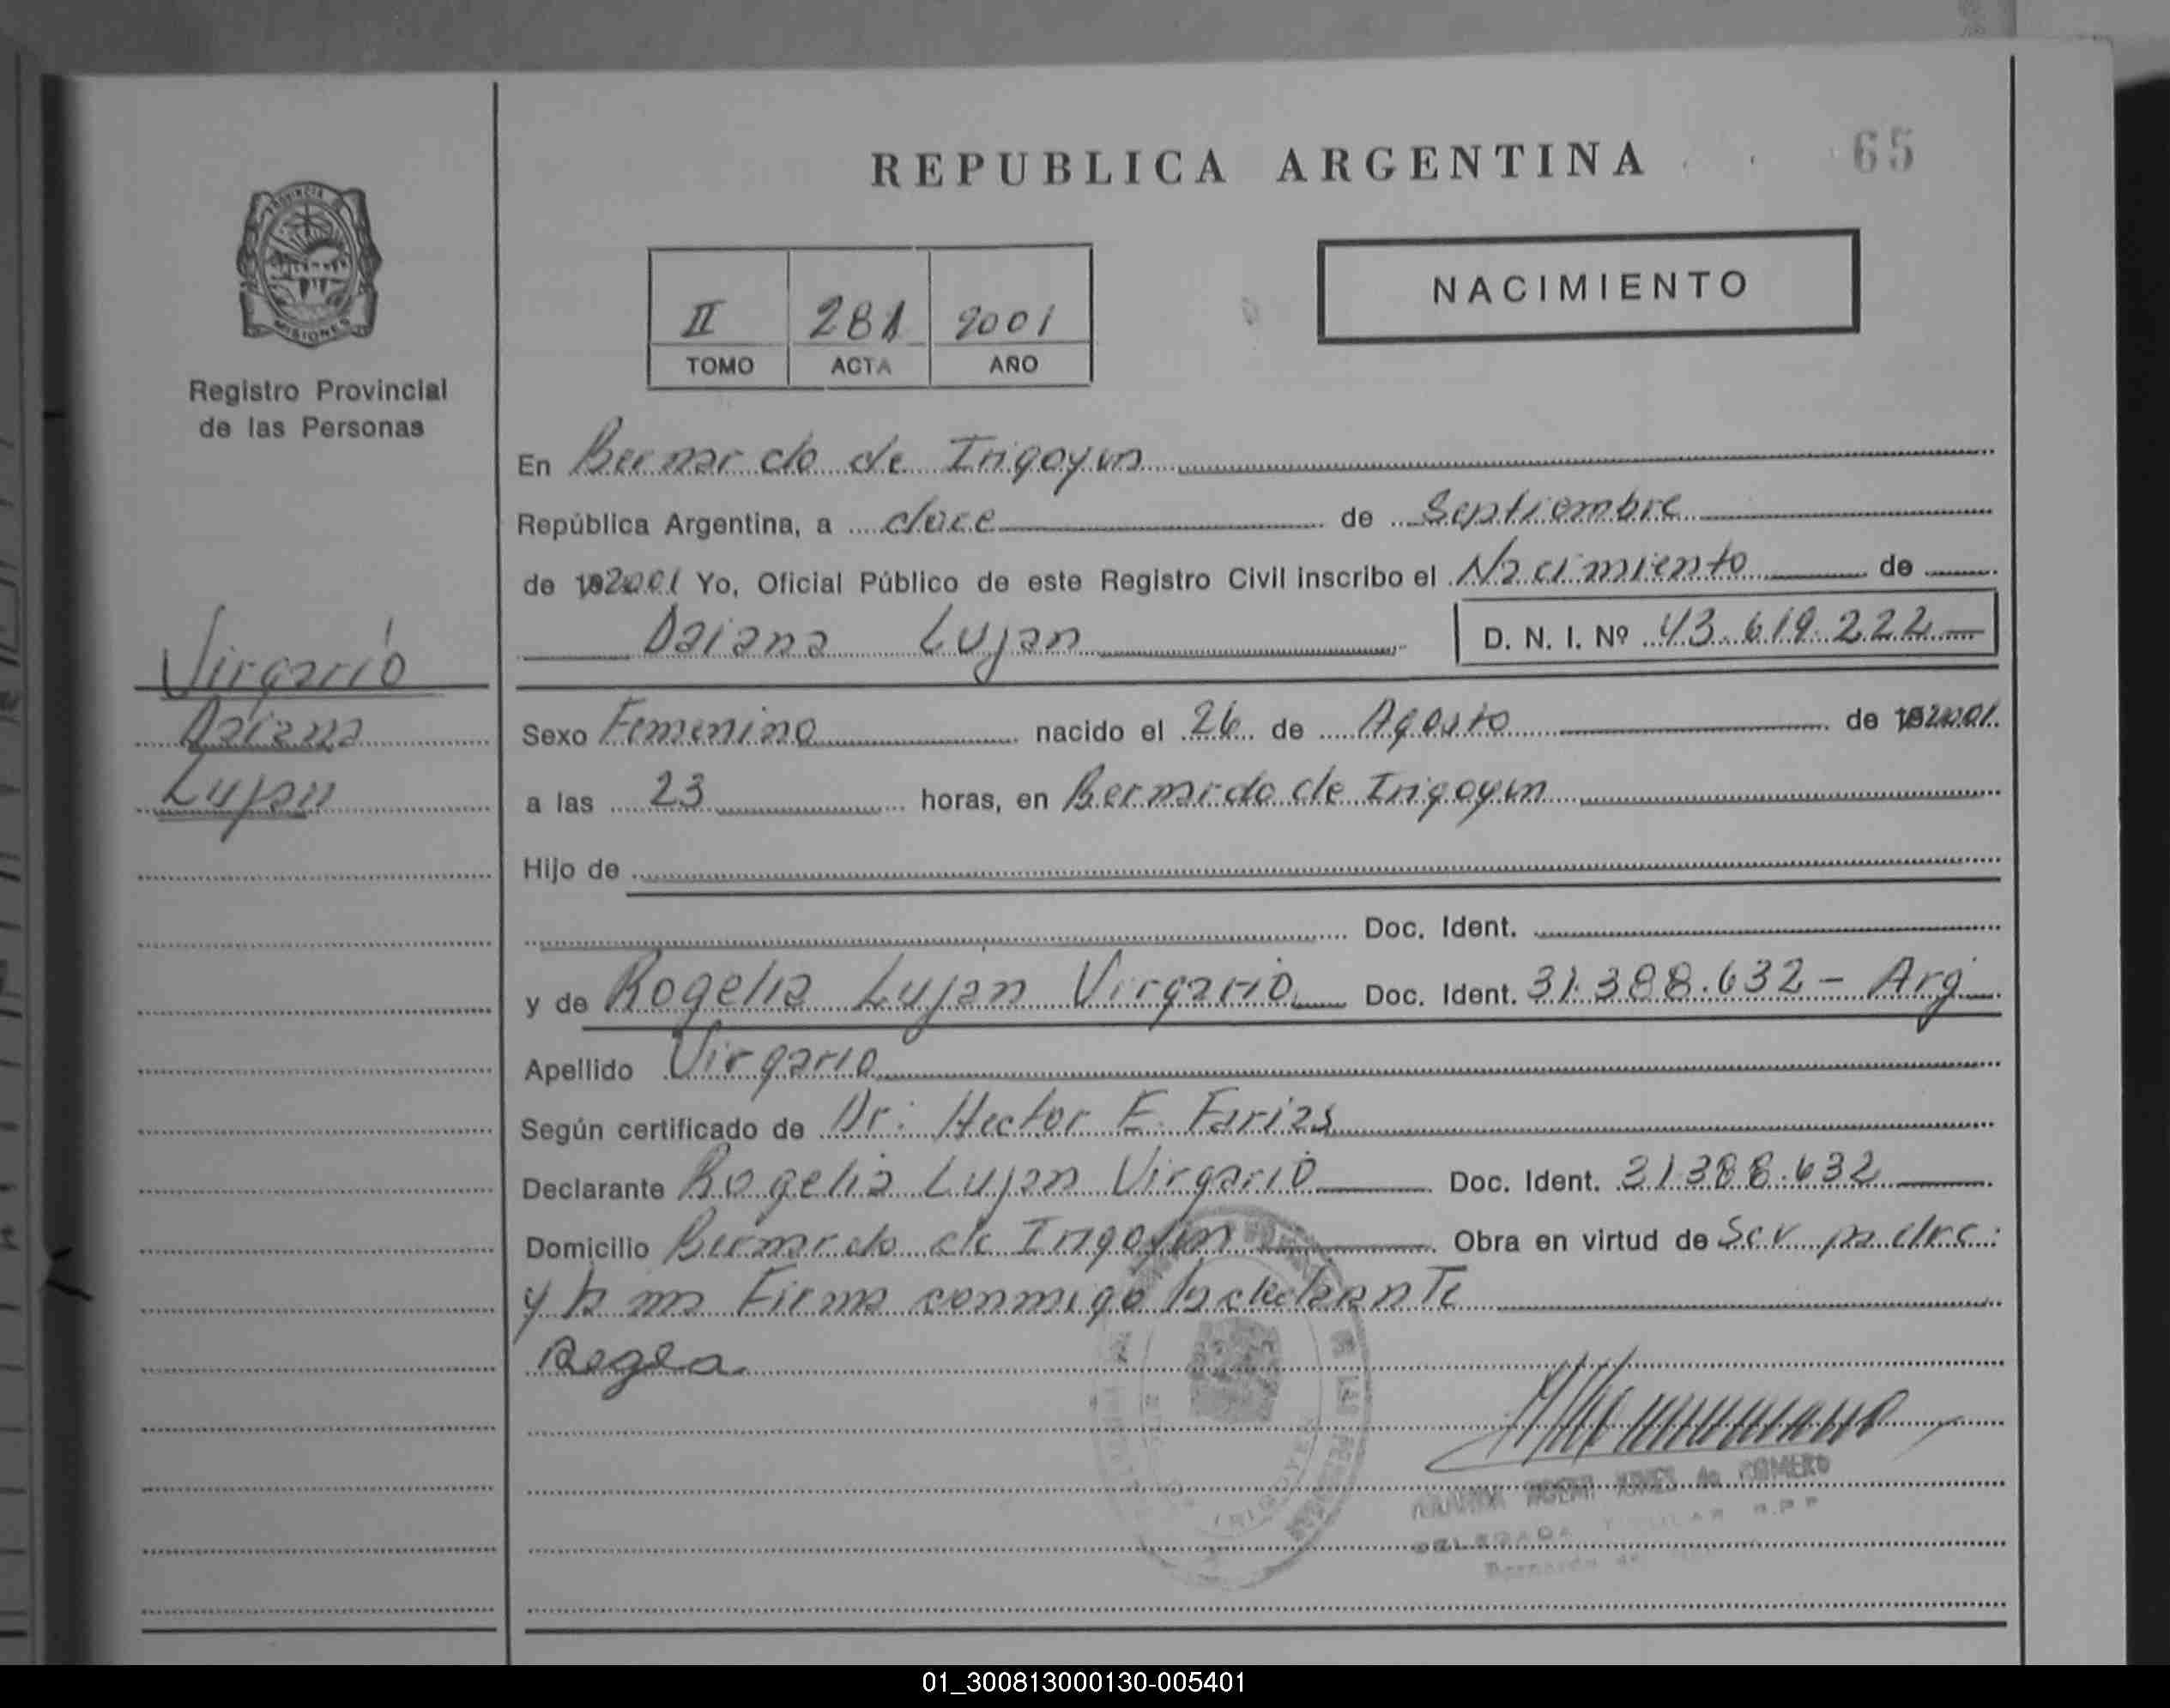 REPUBLICA ARGENTINA
65
PROVINCIA DE
MISIONES
Registro Provincial
de las Personas
II 281 2001
TOMO ACTA AÑO
NACIMIENTO
En Bernardo de Irigoyen
República Argentina, a doce de Septiembre
de 2001 Yo, Oficial Público de este Registro Civil inscribo el Nacimiento de
Daiana Lujan D. N. I. Nº 43.619.222
Virgario
Daiana
Lujan
Sexo Femenino nacido el 26 de Agosto de 2001
a las 23 horas, en Bernardo de Irigoyen
Hijo de
Doc. Ident.
y de Rogelia Lujan Virgario Doc. Ident. 31.388.632 - Arg
Apellido Virgario
Según certificado de Dr: Hector E. Farias
Declarante Rogelia Lujan Virgario Doc. Ident. 31.388.632
Domicilio Bernardo de Irigoyen Obra en virtud de Ser madre:
Firma conmigo
DELEGADA TITULAR R.P.P
Bernardo de
01_300813000130-005401